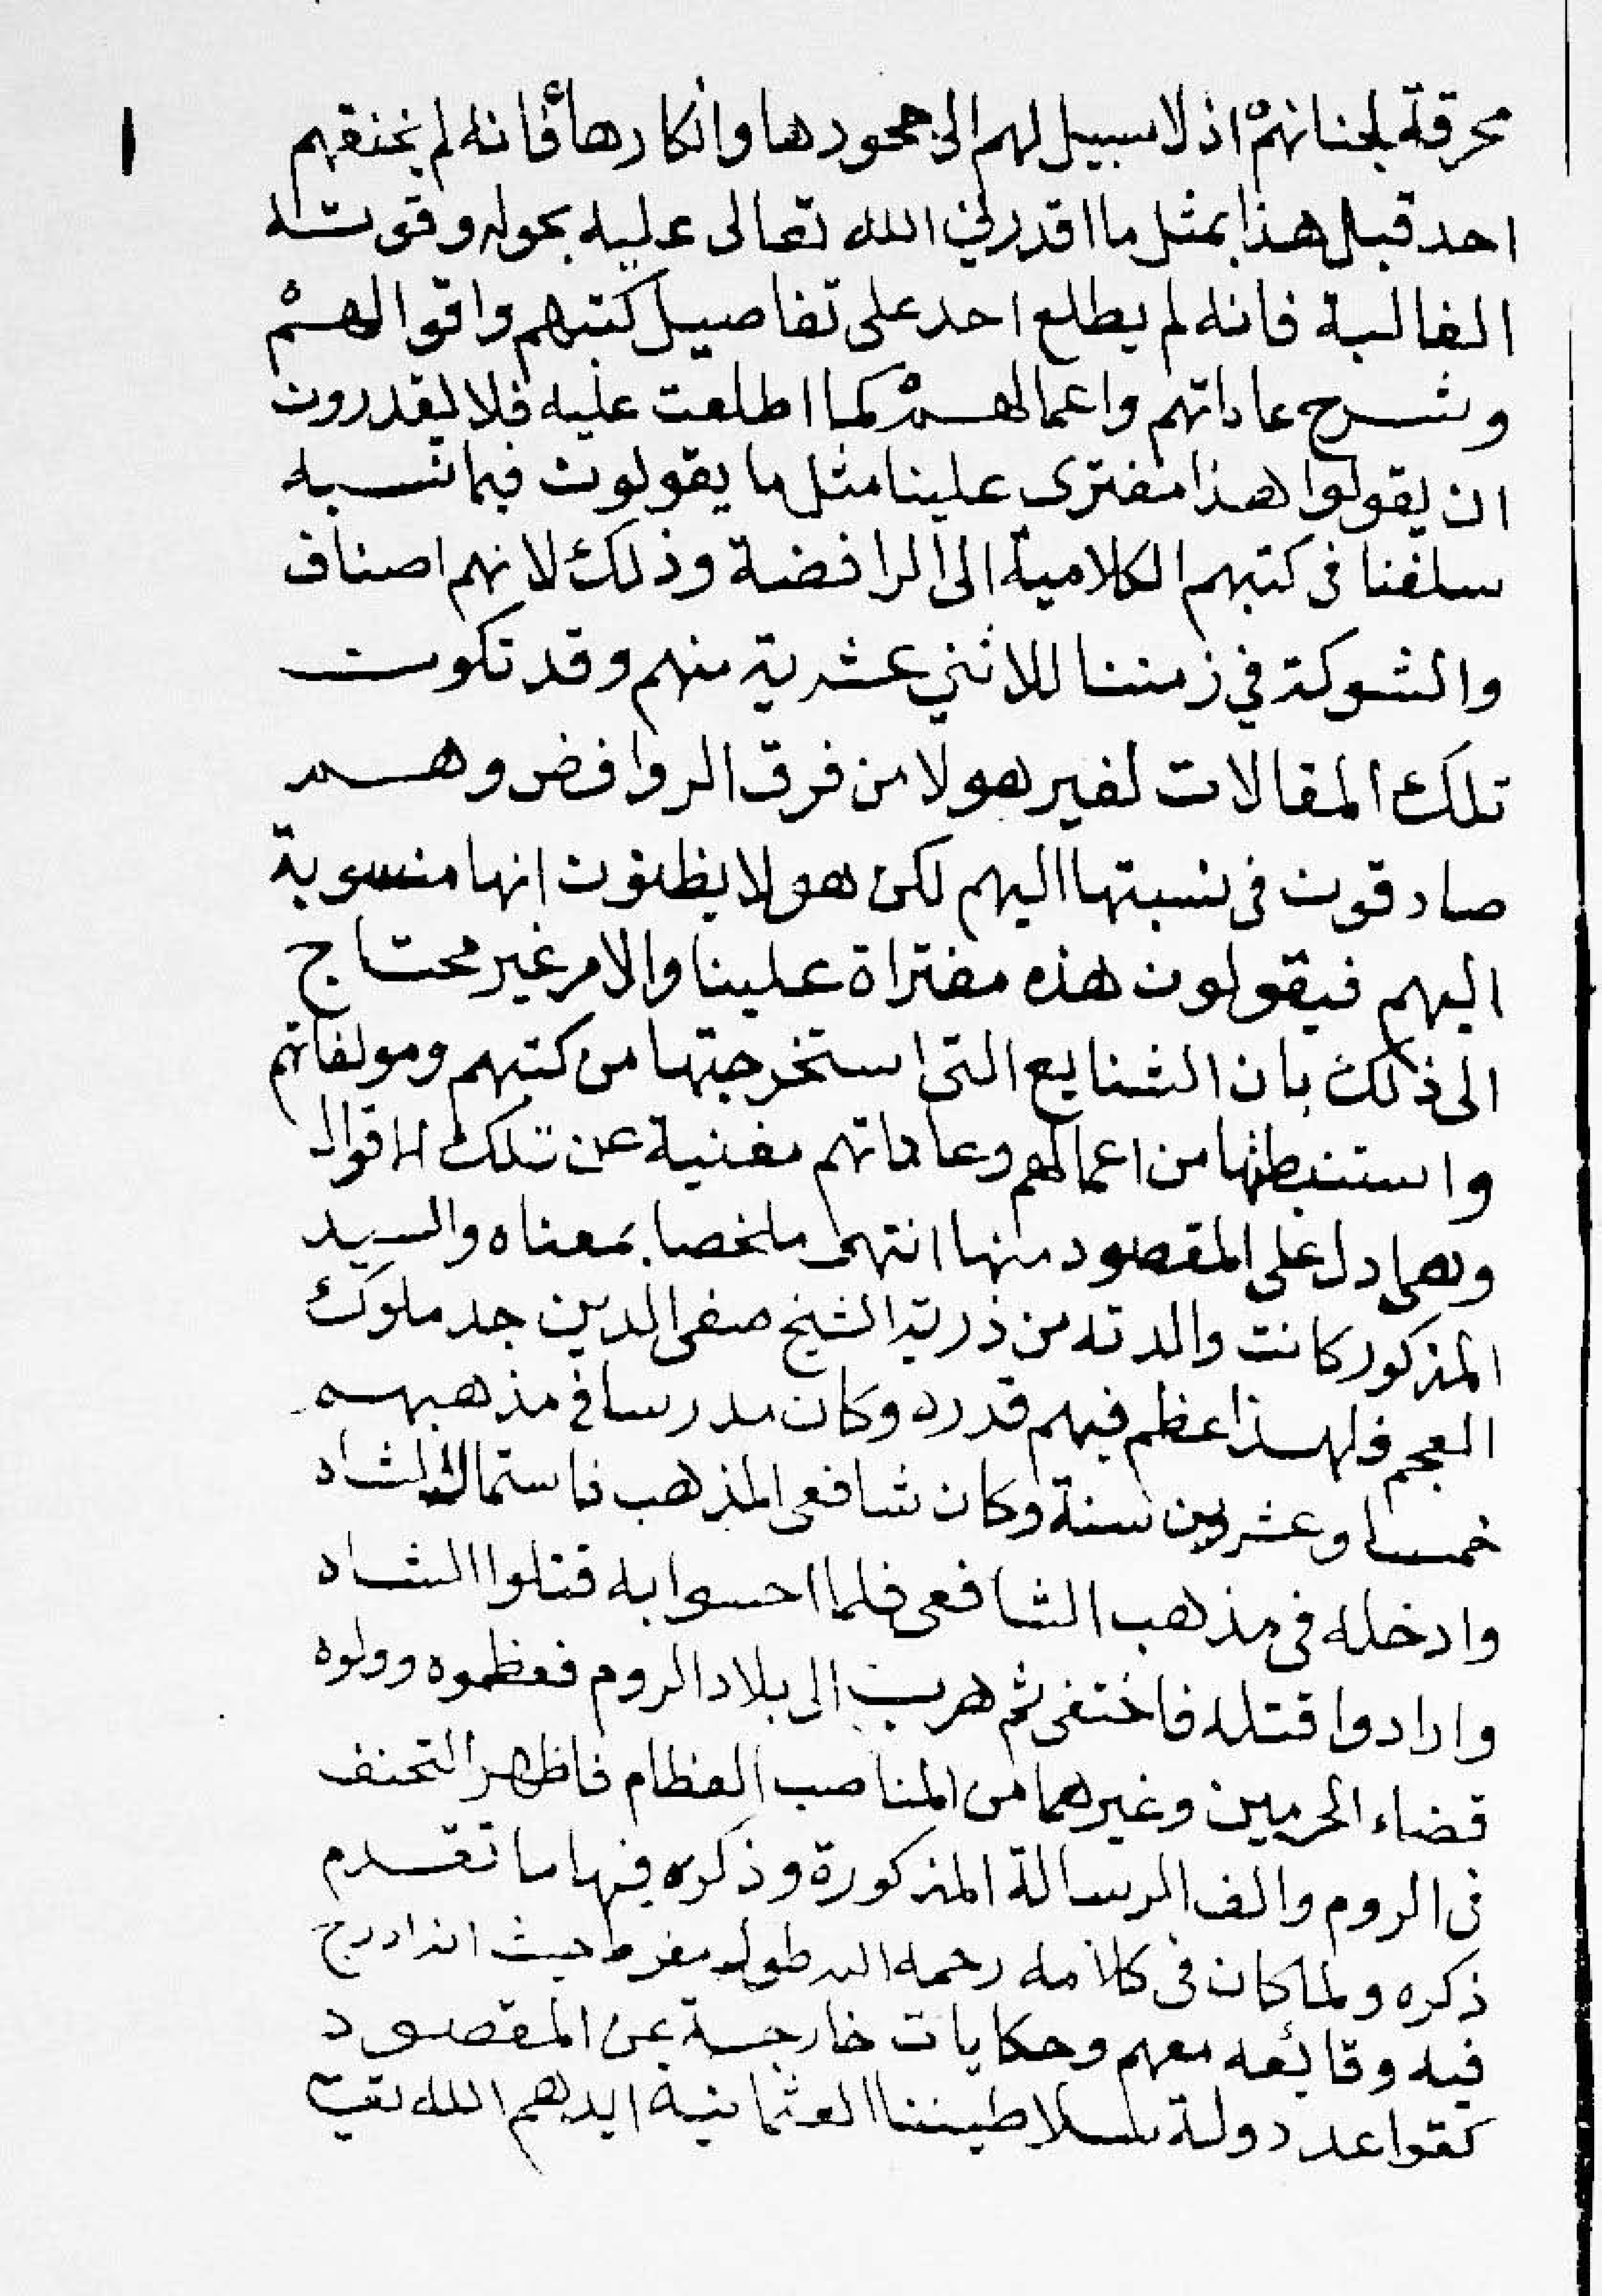 محرقة لجنانهم اذ لا سبيل لهم الى جحودها وانكارها فانه لم يخنقهم
احد قبل هذا بمثل ما اقدرني الله تعالى عليه بحوله وقوته
الغالبة فانه لم يطلع احد على تفاصيل كتبهم واقوالهم
وشرح عاداتهم واعمالهم كما اطلعت عليه فلا يقدرون
ان يقولوا هذا مفترى علينا مثل ما يقولون فيما نسبه
سلفنا فى كتبهم الكلامية الى الرافضة وذلك لانهم اصناف
والشوكة في زمننا للاثني عشرية منهم وقد تكون
تلك المقالات لغير هولا من فرق الروافض وهم
صادقون فى نسبتها اليهم لكن هولا يظنون انها منسوبة
اليهم فيقولون هذه مفتراة علينا والامر غير محتاج
الى ذلك بان الشنايع التى استخرجتها من كتبهم ومولفاتهم
واستنبطتها من اعمالهم وعاداتهم مغنية عن تلك الاقوال
وهى ادل على المقصود منها انتهى ملخصا بمعناه والسيد
المذكور كانت والدته من ذرية الشيخ صفى الدين جد ملوك
العجم فلهذا عظم فيهم قدره وكان مدرسا في مذهبهم
خمسا وعشرين سنة وكان شافعى المذهب فاستمال الشاه
وادخله فى مذهب الشافعى فلما احسوا به قتلوا الشاه
وارادوا قتله فاختفى ثم هرب الى بلاد الروم فعظموه وولوه
قضاء الحرمين وغيرهما من المناصب العظام فاظهر التحنف
فى الروم والف الرسالة المذكورة وذكره فيها ما تقدم
ذكره ولما كان فى كلامه رحمه الله طول مفرط حيث انه ادرج
فيه وقائعه معهم وحكايات خارجة عن المقصود
كقواعد دولة سلاطيننا العثمانية ايدهم الله